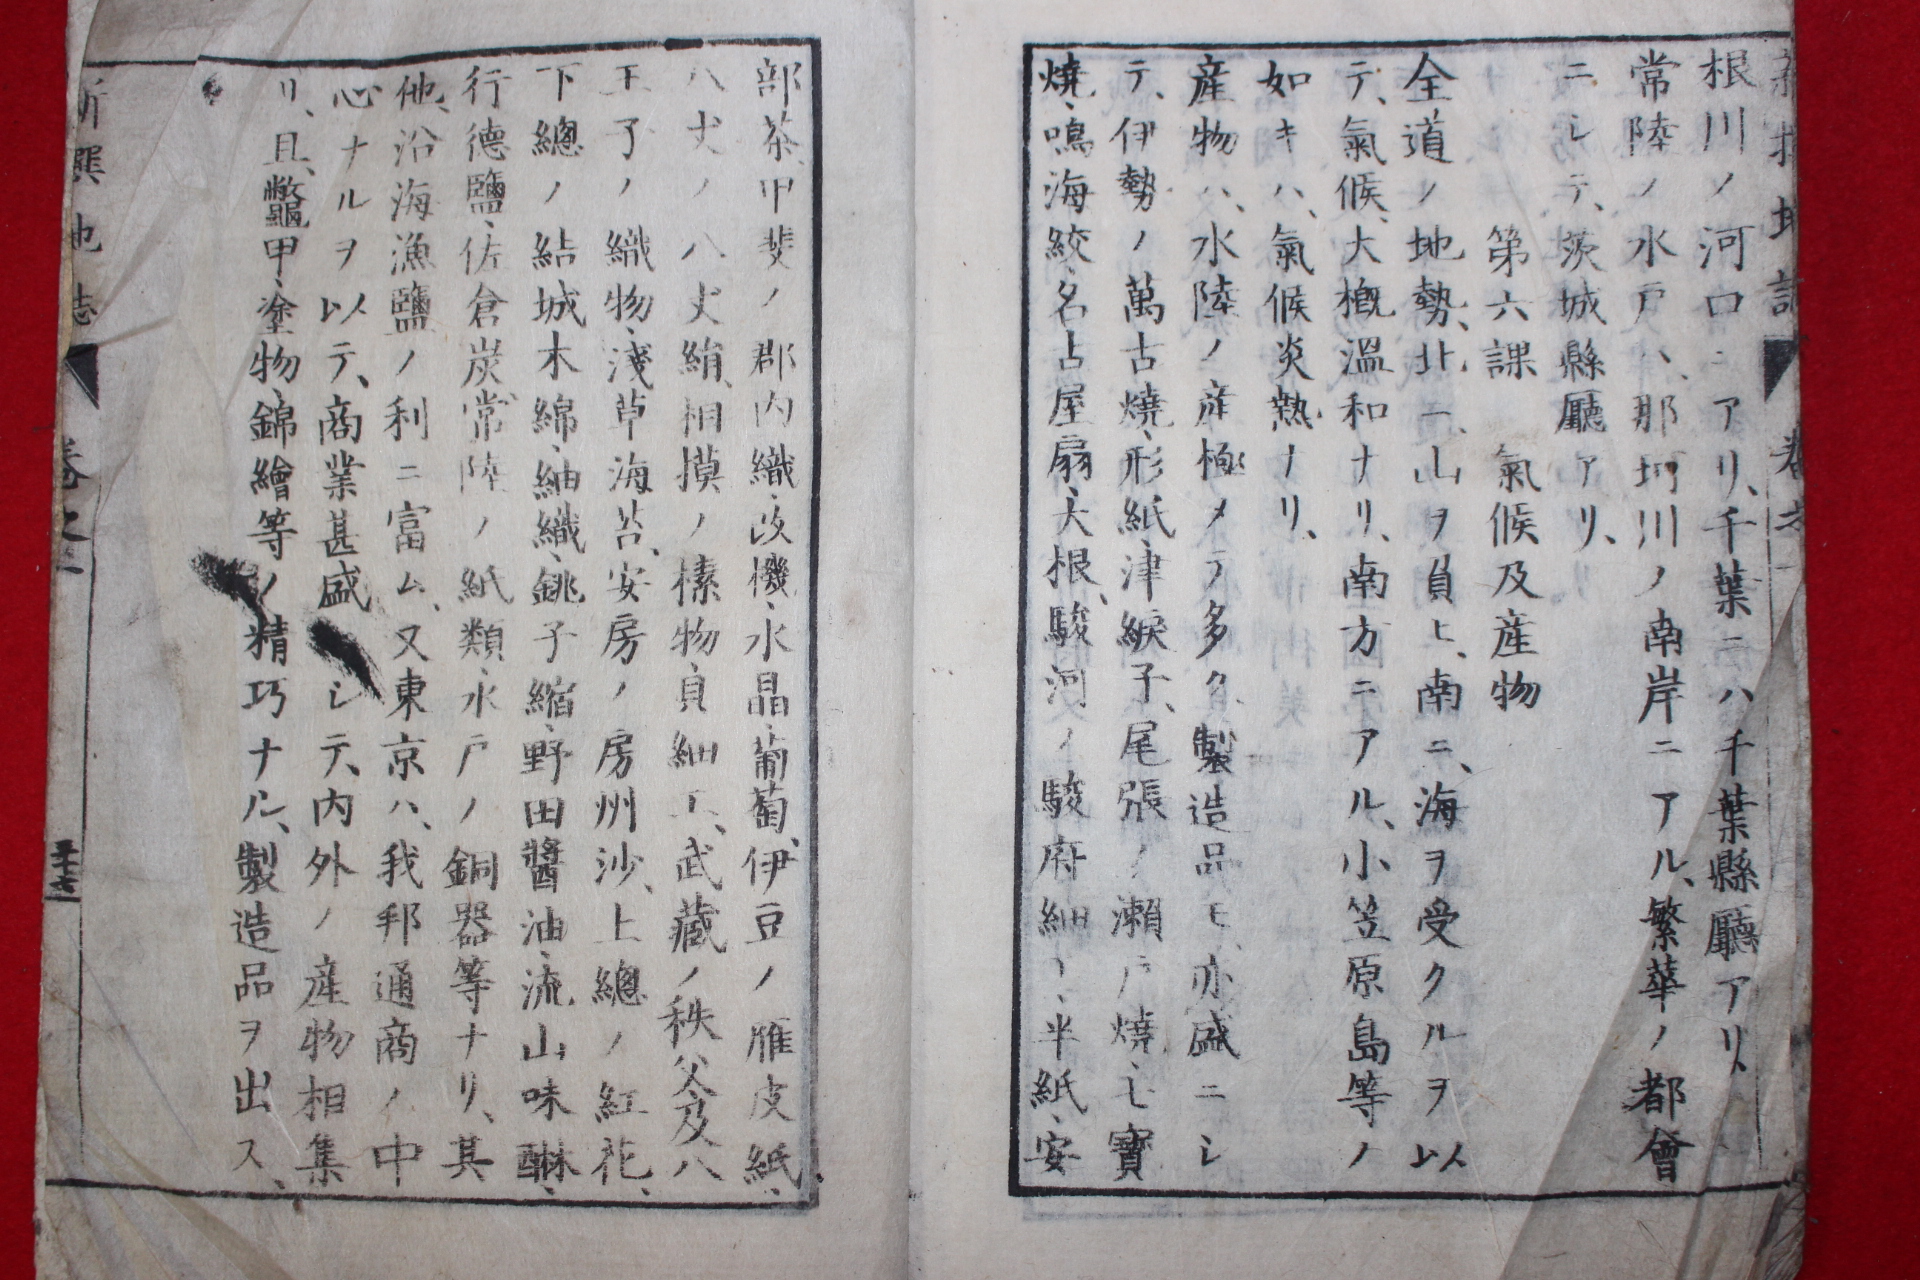 根川ノ河口ニアリ、千葉ニハ千葉縣廳アリ、
常陸ノ水戸ハ、那珂川ノ南岸ニアル、繁華ノ都會
ニシテ、茨城縣廳アリ、
第六課 氣候及産物
全道ノ地勢、北ニ、山ヲ負ヒ、南ニ、海ヲ受クルヲ以
テ、氣候、大概溫和ナリ、南方ニアル、小笠原島等ノ
如キハ、氣候炎熱ナリ、
産物ハ、水陸ノ産極メテ多ク、製造品モ、亦盛ニシ
テ、伊勢ノ萬古燒、形紙、津綟子、尾張ノ瀨戸燒、七寶
燒、鳴海絞、名古屋扇、大根、駿河ノ駿府細工、半紙、安
部茶、甲斐ノ郡内織、改機、水晶、葡萄、伊豆ノ雁皮紙、
八丈ノ八丈絹、相摸ノ榛物、貝細工、武藏ノ秩父及八
王子ノ織物、淺草海苔、安房ノ房州沙、上總ノ紅花、
下總ノ結城木綿、紬織、銚子縮、野田醬油、流山味醂、
行德鹽、佐倉炭、常陸ノ紙類、水戸ノ銅器等ナリ、其
他、沿海漁鹽ノ利ニ富ム、又東京ハ、我邦通商ノ中
心ナルヲ以テ、商業甚盛ニシテ、内外ノ産物相集
リ、且、鼈甲、塗物、錦繪等ノ精巧ナル、製造品ヲ出ス、
新撰地誌 卷之二 三十六